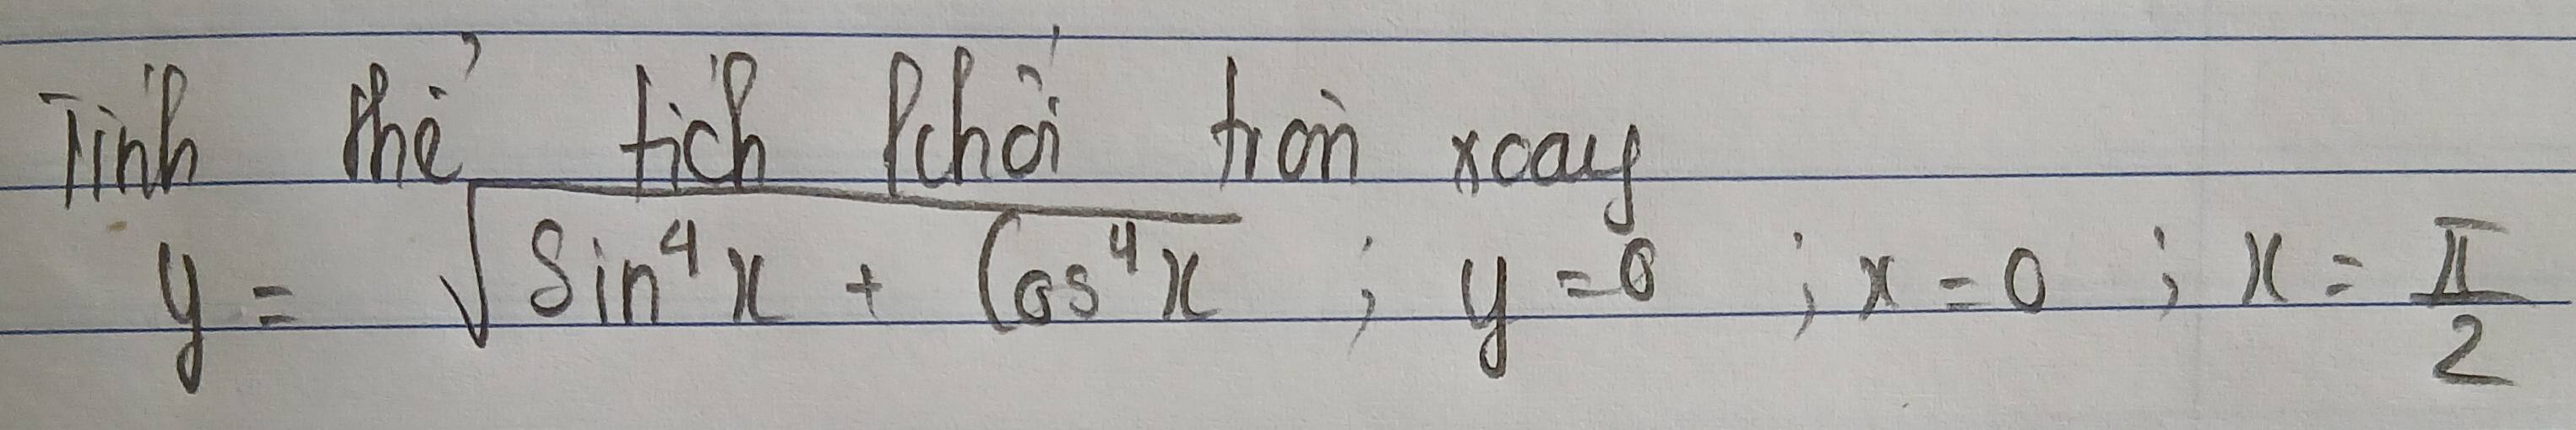 Tính thể tích khối tròn xoay
y = √(Sin⁴x + Cos⁴x) ; y = 0 ; x = 0 ; x = π/2